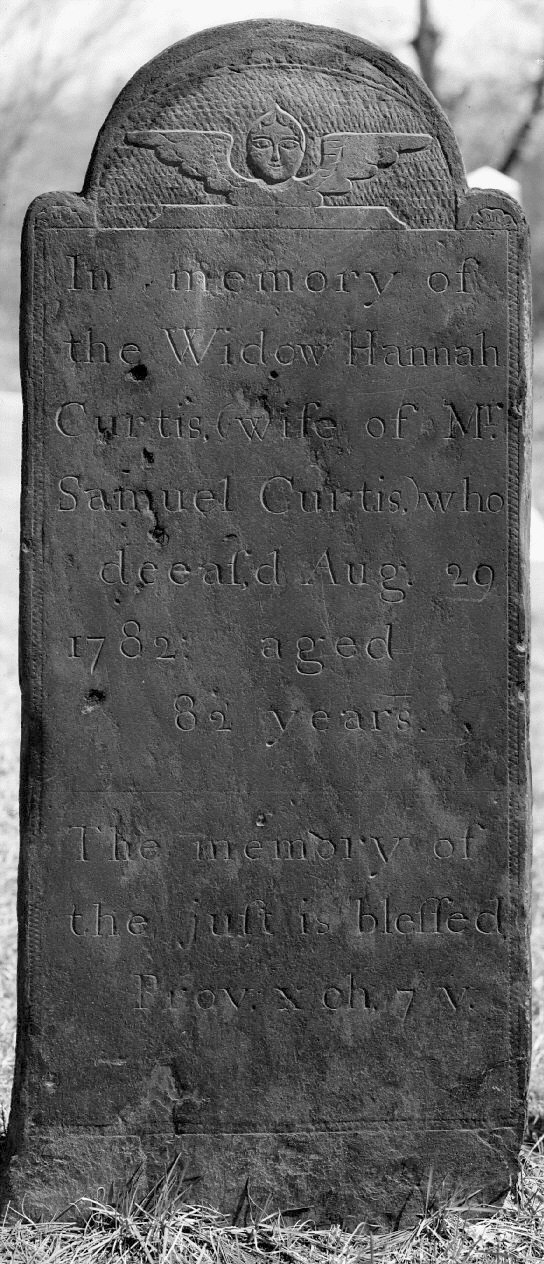 In memory of
the Widow Hannah
Curtis, (wife of Mr.
Samuel Curtis,) who
deceaſ,d Aug. 29
1782: aged
82 years.
The memory of
the juſt is bleſſed
Prov: x ch. 7 v.